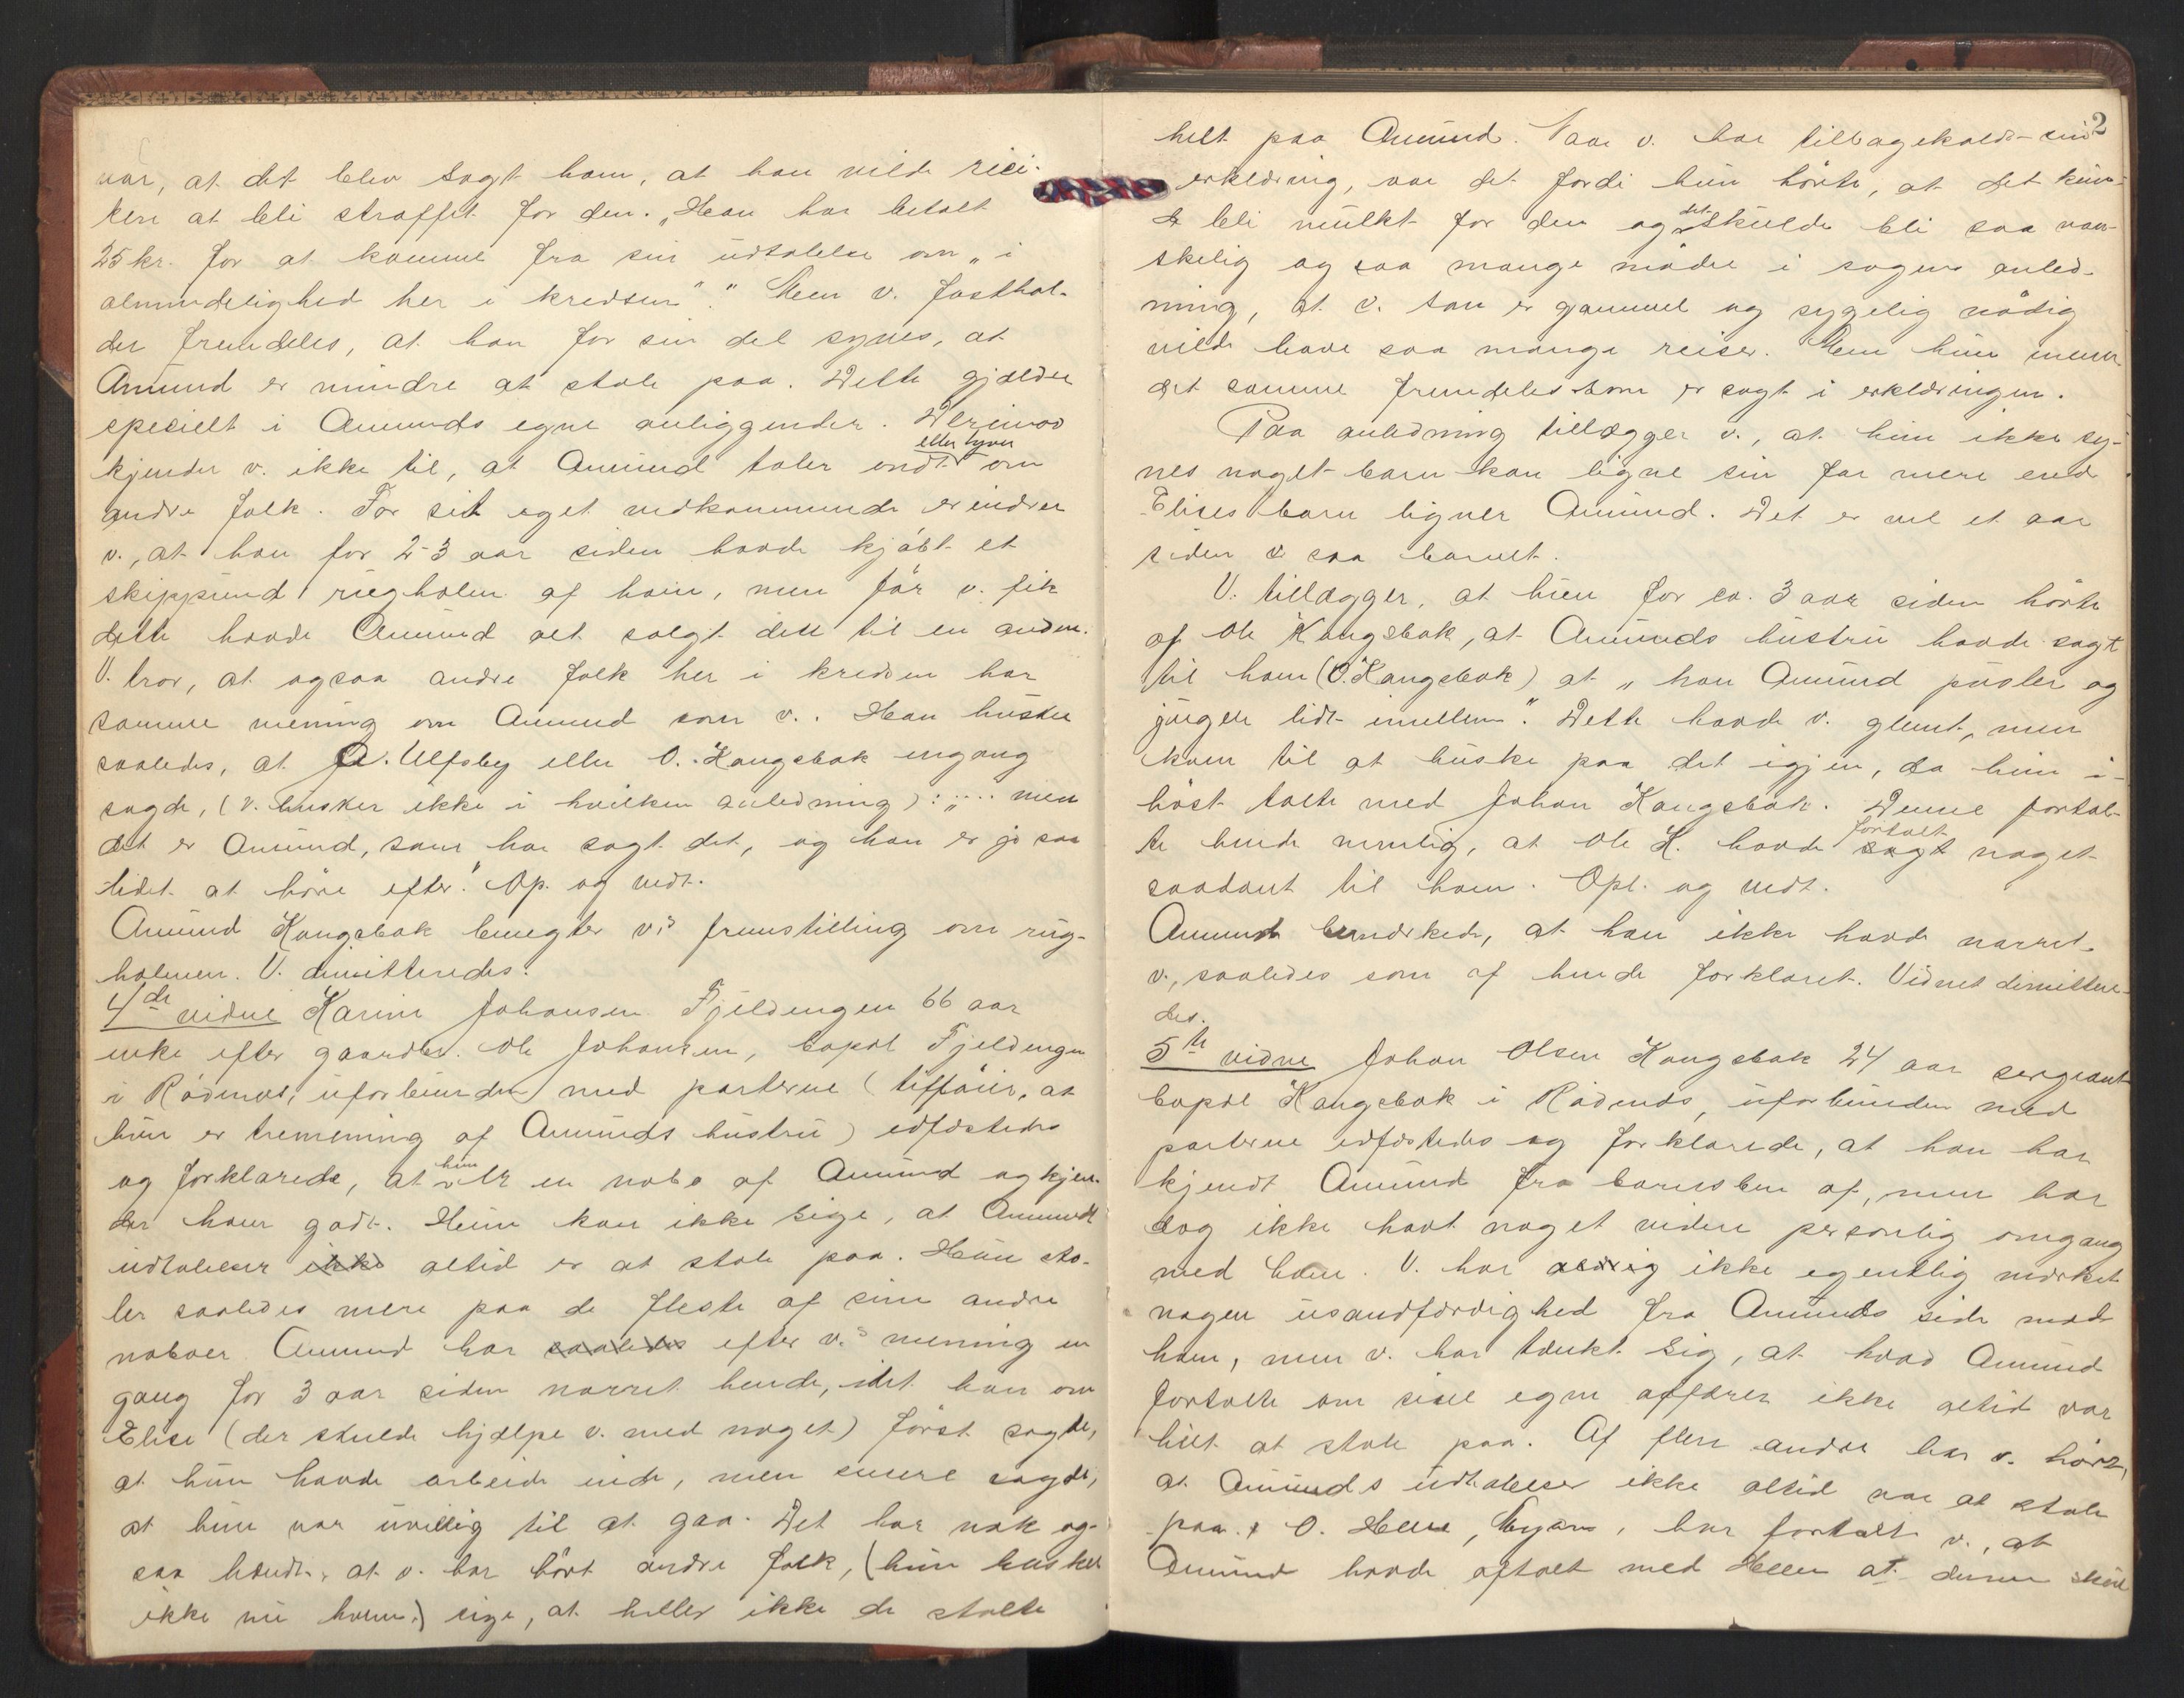 var, at det blev sagt ham, at han vilde risi-
kere at bli straffet for den. „Han har betalt
25 kr. for at komme fra sin udtalelse om „i
almindelighed her i kredsen“.“ Men v. fasthol-
der fremdeles, at han for sin del synes, at
Amund er mindre at stole paa. Dette gjælder
specielt i Amunds egne anliggender. Derimod
eller lyver
kjender v. ikke til, at Amund taler ondt om
andre folk. For sit eget vedkommende erindrer
v., at han for 2-3 aar siden havde kjøbt et
skippund rughalm af ham, men før v. fik
dette havde Amund alt solgt dett til en anden.
V. tror, at ogsaa andre folk her i kredsen har
samme mening om Amund som v.. Han husker
saaledes, at A. Ulfsby eller O. Kangsbak engang
sagde, (v. husker ikke i hvilken anledning): „.... men
det er Amund, som har sagt det, og han er jo saa
lidet at høre efter.“ Op. og vedt.
Amund Kangsbak benegter v.s fremstilling om rug-
halmen. V. dimitteredes.
4de vidne Karine Johansen Fjeldengen 66 aar
enke efter gaardbr. Ole Johansen, bopæl Fjeldengen
i Rødenæs, uforbunden med parterne (tilføier, at
hun er tremening af Amunds hustru) edfæstedes
hun
og forklarede, at er en nabo af Amund og kjen-
der ham godt. Hun kan ikke sige, at Amunds
udtalelser ikke altid er at stole paa. Hun sto-
ler saaledes mere paa de fleste af sine andre
naboer. Amund har saaledes efter v.s mening en
gang for 3 aar siden narret hende, idet han om
Elise (der skulde hjælpe v. med noget) først sagde,
at hun havde arbeide inde, men senere sagde,
at hun var uvillig til at gaa. Det har nok og-
saa hændt, at v. har hørt andre folk, (hun husker
ikke nu hvem) sige, at heller ikke de stolte
2
helt paa Amund. Naar v. har tilbagekaldt sin
erklæring, var det fordi hun hørte, at det kun-
det
de bli mulkt for den og skulde bli saa van-
skelig og saa mange møder i sagens anled-
ning, at v. som er gammel og sygelig nødig
vilde have saa mange reiser. Men hun mener
det samme fremdeles som er sagt i erklæringen.
Paa anledning tillægger v., at hun ikke sy-
nes noget barn kan ligne sin far mere end
Elises barn ligner Amund. Det er vel et aar
siden v. saa barnet.
V. tillægger, at hun for ca. 3 aar siden hørte
af Ole Kangsbak, at Amunds hustru havde sagt
til ham (O. Kangsbak) at „han Amund pusler og
juger lidt imellem“. Dette havde v. glemt, men
kom til at huske paa det igjen, da hun i-
høst talte med Johan Kangsbak. Denne fortal-
fortalt
te hende nemlig, at Ole K. havde sagt noget
saadant til ham. Opl. og vedt.
Amund bemærkede, at han ikke havde narret
v., saaledes som af hende forklaret. Vidnet dimittere-
des.
5te vidne Johan Olsen Kangsbak 24 aar sergeant
bopæl Kangsbak i Rødenæs, uforbunden med
parterne edfæstedes og forklarede, at han har
kjendt Amund fra barnsben af, men har
dog ikke havt noget videre personlig omgang
med ham. V. har aldrig ikke egentlig mærket
nogen usandfærdighed fra Amunds side mod
ham, men v. har tænkt sig, at hvad Amund
fortalte om sine egne affærer ikke altid var
helt at stole paa. Af flere andre har v. hørt,
at Amunds udtalelser ikke altid var at stole
paa. O. Heller, har fortalt v., at
Amund havde aftalt med Heller at denne skul